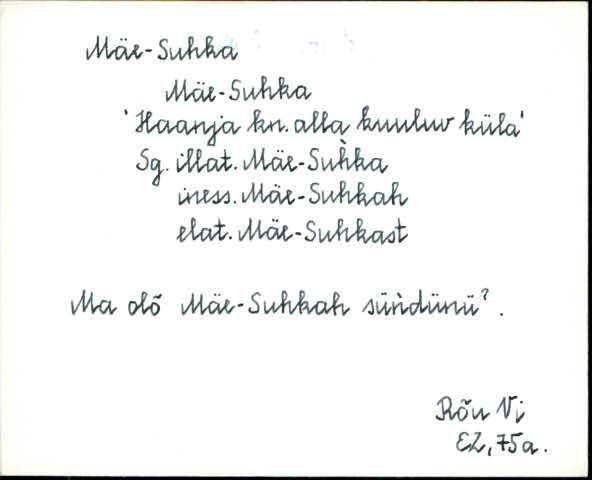 Mäe-Suhka
Mäe-Suhka
'Haanja kn. alla kuuluv küla'
Sg. illat. Mäe-Suh̀ka
iness. Mäe-Suhkah
elat. Mäe-Suhkast
Ma olõ Mäe-Suhkah süǹdünü?.
Rõu Vi
EZ, 75a.